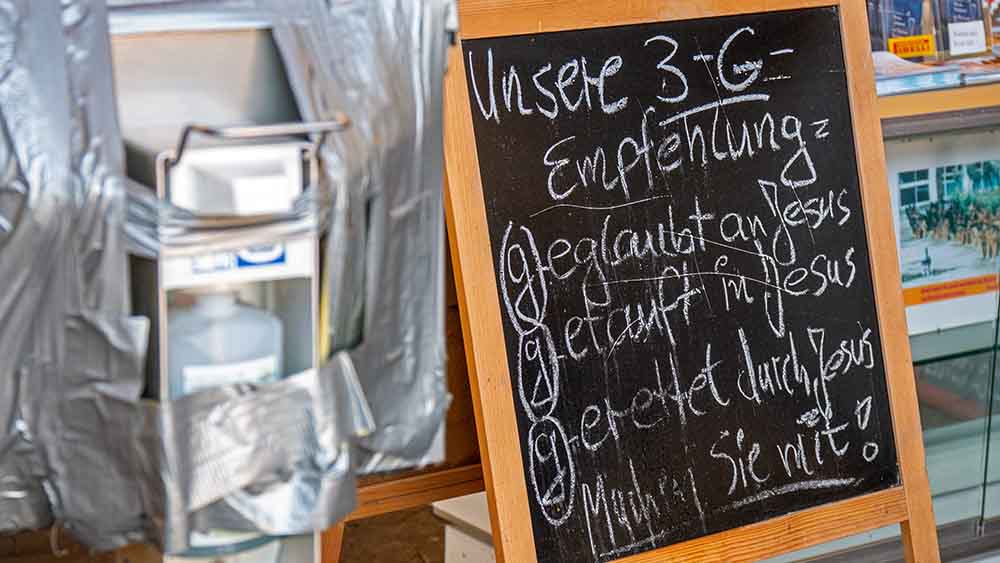 Unsere 3-G-
Empfehlung:
geglaubt an Jesus
getauft in Jesus
gerettet durch Jesus
Machen
Sie mit!
PIRELLI